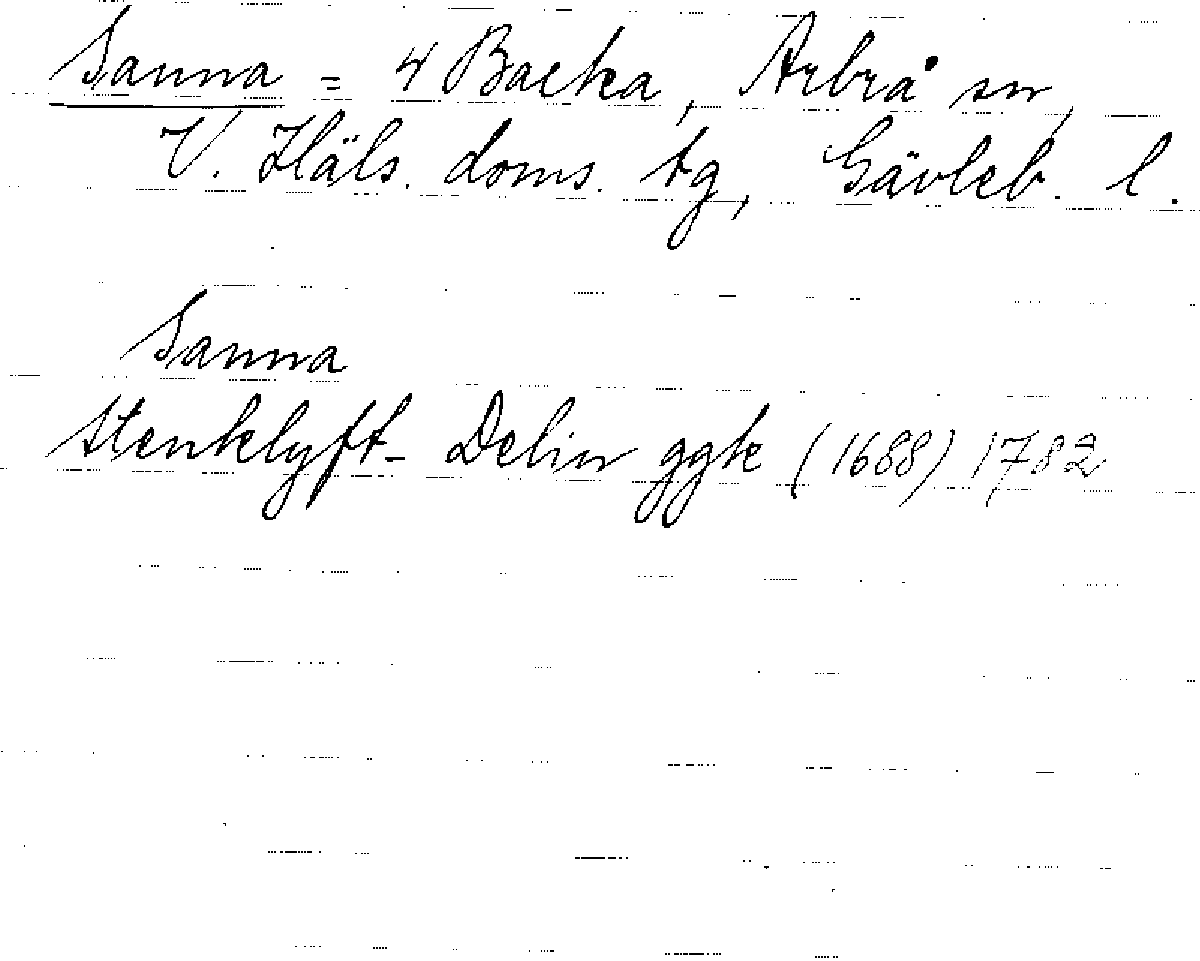 Sanna = 4 Backa, Arbrå sn,
V. Häls. doms. tg, Gävleb. l.
Sanna
Stenklyft- Delin ggk (1688) 1782